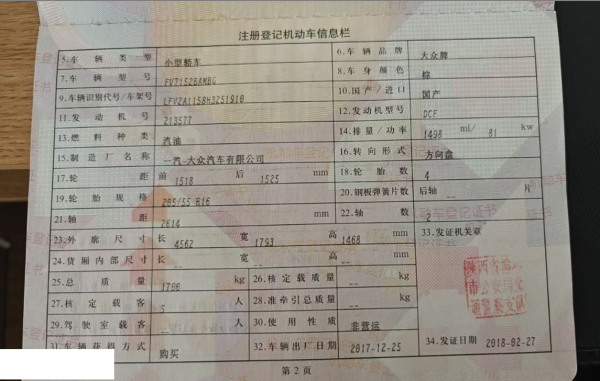 注册登记机动车信息栏
5.车辆类型 小型轿车 6.车辆品牌 大众牌
7.车辆型号 FV7152BAMBG 8.车身颜色 棕
9.车辆识别代号/车架号 10.国产/进口 国产
11.发动机号 213577 12.发动机型号 DCF
13.燃料种类 汽油 14.排量/功率 1498 ml/ 81 kw
15.制造厂名称 一汽-大众汽车有限公司 16.转向形式 方向盘
17.轮距 前 1518 后 1525 mm 18.轮胎数 4
19.轮胎规格 205/55 R16 20.钢板弹簧片数 后轴 -- 片
21.轴距 2614 mm 22.轴数 2
23.外廓尺寸 长 4562 宽 1793 高 1468 mm 33.发证机关章
24.货厢内部尺寸 长 -- 宽 -- 高 -- mm
25.总质量 kg 26.核定载质量 -- kg
27.核定载客 5 人 28.准牵引总质量 -- kg
29.驾驶室载客 -- 人 30.使用性质 非营运
31.车辆获得方式 购买 32.车辆出厂日期 2017-12-25 34.发证日期 2018-02-27
第2页